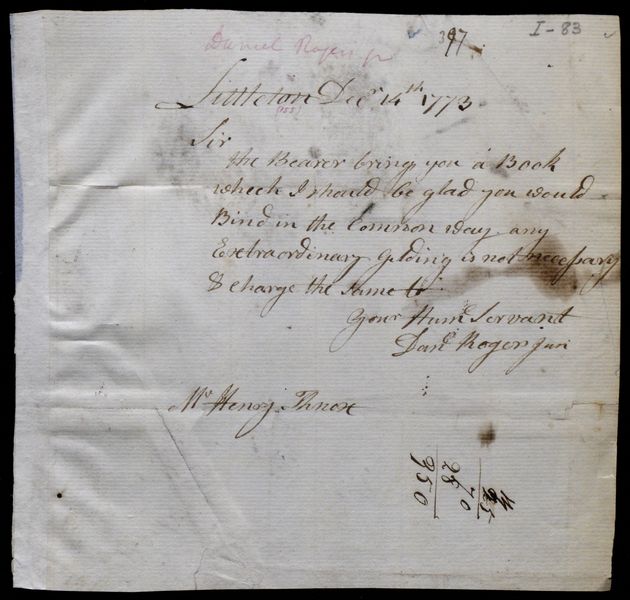 I-83
397
Daniel Rogers jr
Littleton Decr 14th 1773
(Mss)
Sir
the Bearer brings you a Book
which I should be glad you would
Bind in the Common way any
Extraordinary Gilding is not necessary
& charge the same to
Your Humle Servant
Danl Rogers Jun
Mr Henry Knox
25
70
28
950